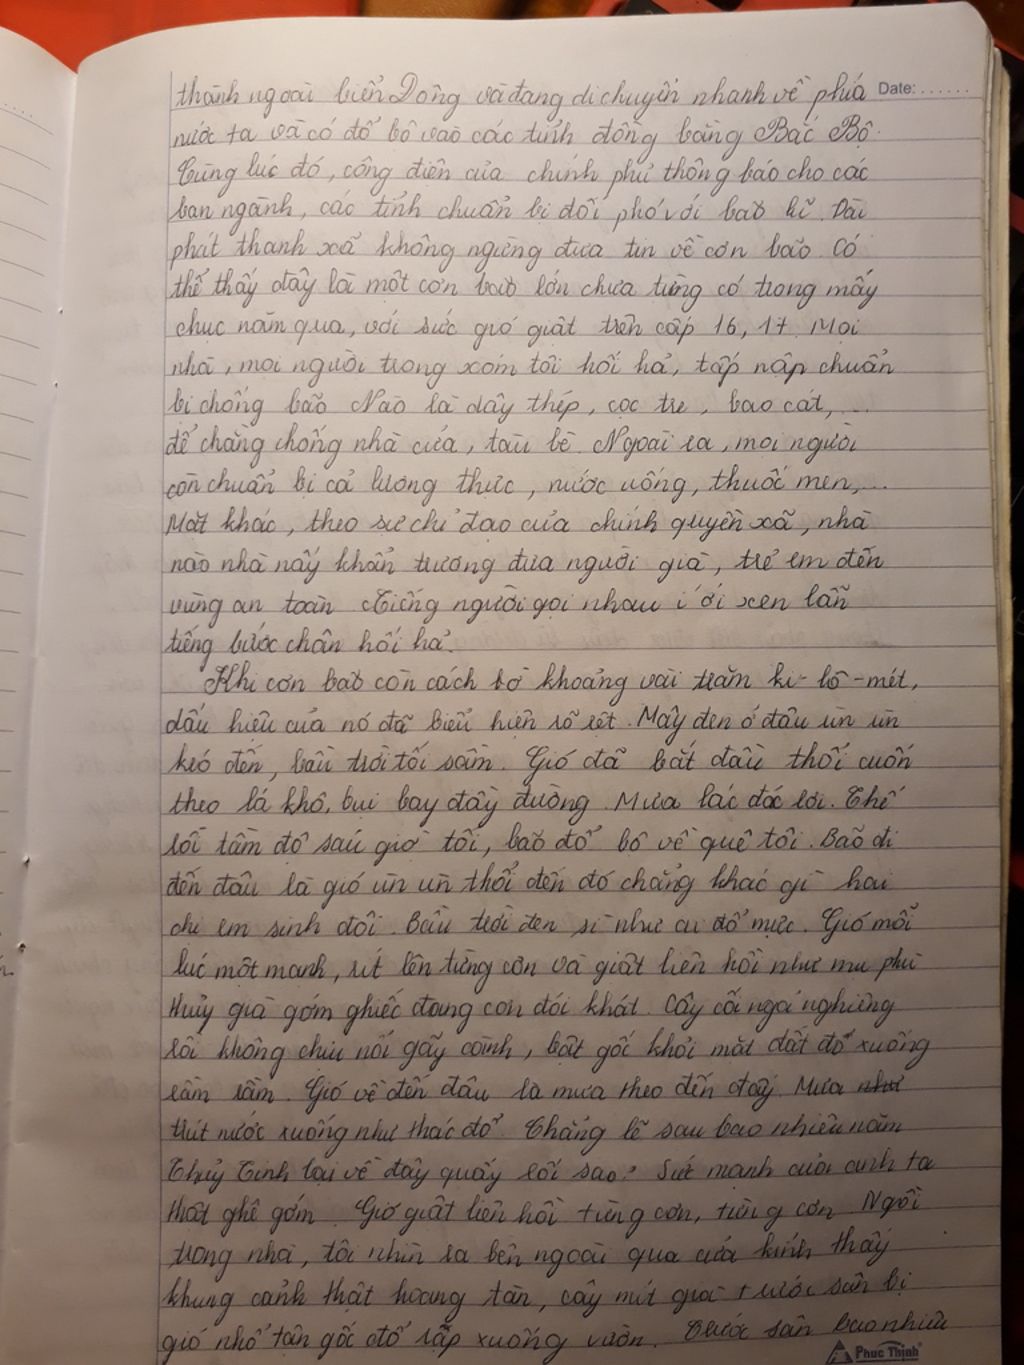 thành ngoài biển Đông và đang di chuyển nhanh về phía Date: ......
nước ta và có đổ bộ vào các tỉnh đồng bằng Bắc Bộ.
Cùng lúc đó, công điện của chính phủ thông báo cho các
ban ngành, các tỉnh chuẩn bị đối phó với bão lũ. Đài
phát thanh xã không ngừng đưa tin về cơn bão. Có
thể thấy đây là một cơn bão lớn chưa từng có trong mấy
chục năm qua, với sức gió giật trên cấp 16, 17. Mọi
nhà, mọi người trong xóm tôi hối hả, tấp nập chuẩn
bị chống bão. Nào là dây thép, cọc tre, bao cát,...
để chằng chống nhà cửa, tàu bè. Ngoài ra, mọi người
còn chuẩn bị cả lương thực, nước uống, thuốc men,...
Mặt khác, theo sự chỉ đạo của chính quyền xã, nhà
nào nhà nấy khẩn trương đưa người già, trẻ em đến
vùng an toàn. Tiếng người gọi nhau í ới xen lẫn
tiếng bước chân hối hả.
Khi cơn bão còn cách bờ khoảng vài trăm ki-lô-mét,
dấu hiệu của nó đã biểu hiện rõ rệt. Mây đen ở đâu ùn ùn
kéo đến, bầu trời tối sầm. Gió đã bắt đầu thổi cuốn
theo lá khô, bụi bay đầy đường. Mưa lác đác rơi. Thế
rồi tầm độ sáu giờ tối, bão đổ bộ về quê tôi. Bão đi
đến đâu là gió ùn ùn thổi đến đó chẳng khác gì hai
chị em sinh đôi. Bầu trời đen sì như ai đổ mực. Gió mỗi
lúc một mạnh, rít lên từng cơn và giật liên hồi như mụ phù
thủy già gớm ghiếc đang cơn đói khát. Cây cối ngả nghiêng
rồi không chịu nổi gãy cành, bật gốc khỏi mặt đất đổ xuống
rầm rầm. Gió về đến đâu là mưa theo đến đấy. Mưa như
trút nước xuống như thác đổ. Chẳng lẽ sau bao nhiêu năm
Thủy Tinh lại về đây quấy rối sao? Sức mạnh của anh ta
thật ghê gớm. Gió giật liên hồi từng cơn, từng cơn. Ngồi
trong nhà, tôi nhìn ra bên ngoài qua cửa kính thấy
khung cảnh thật hoang tàn, cây mít già trước sân bị
gió nhổ tận gốc đổ rập xuống vườn. Trước sân bao nhiêu
Phuc Thinh